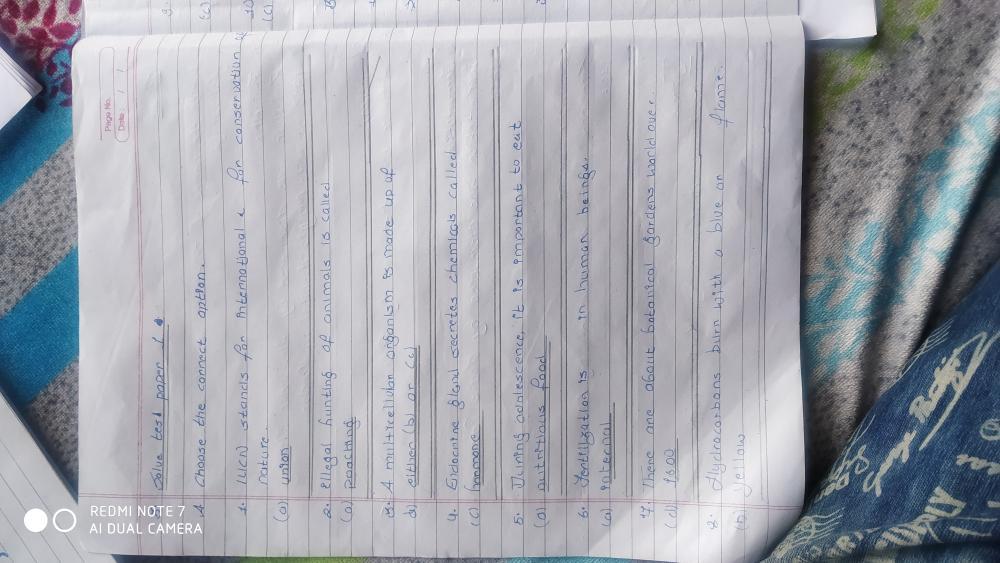 Page No.
Date: / /
Solve test paper 1
A Choose the correct option.
1. IUCN stands for International & for conservation of
nature.
(a) union
2. Illegal hunting of animals is called
(a) poaching
3. A multicellular organism is made up of
d) either (b) or (c)
4. Endocrine gland secretes chemicals called
(c) hormone
5. During adolescence, it is important to eat
(a) nutritious food
6. Fertilization is in human beings.
(a) internal
7. There are about botanical gardens world over.
(d) 1800
8. Hydrocarbons burn with a blue or flame.
(b) yellow
REDMI NOTE 7
AI DUAL CAMERA